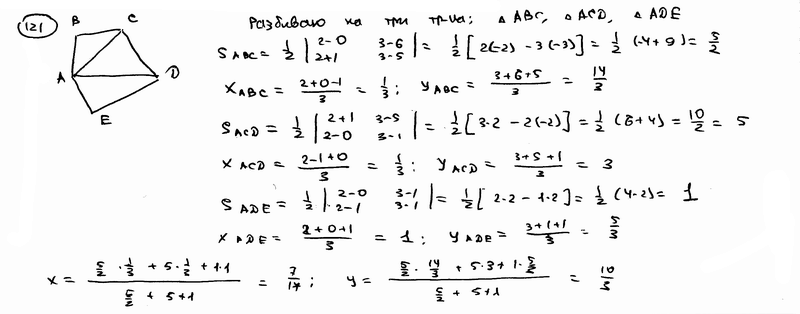 121
B C A D E
Разбиваю на три тр-ка; △ ABC, △ ACD, △ ADE
S ABC = 1/2 | 2-0 3-6 ; 2+1 3-5 | = 1/2 [2(-2) - 3(-3)] = 1/2 (-4+9) = 5/2
X ABC = (2+0-1)/3 = 1/3; Y ABC = (3+6+5)/3 = 14/3
S ACD = 1/2 | 2+1 3-5 ; 2-0 3-1 | = 1/2 [3·2 - 2(-2)] = 1/2 (6+4) = 10/2 = 5
X ACD = (2-1+0)/3 = 1/3; Y ACD = (3+5+1)/3 = 3
S ADE = 1/2 | 2-0 3-1 ; 2-1 3-1 | = 1/2 [2·2 - 1·2] = 1/2 (4-2) = 1
X ADE = (2+0+1)/3 = 1; Y ADE = (3+1+1)/3 = 5/3
X = (5/2 · 1/3 + 5 · 1/2 + 1·1)/(5/2 + 5+1) = 7/17; Y = (5/2 · 14/3 + 5·3 + 1 · 5/2)/(5/2 + 5+1) = 10/3